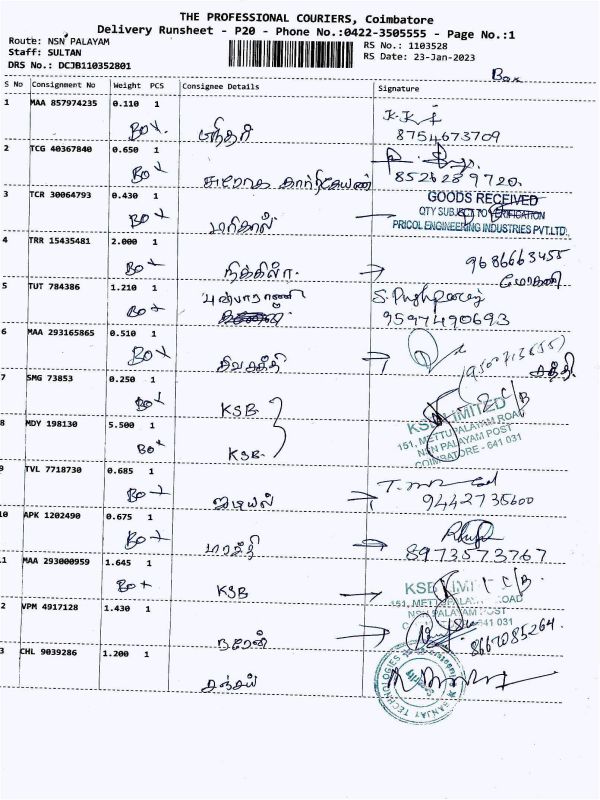 THE PROFESSIONAL COURIERS, Coimbatore
Delivery Runsheet - P20 - Phone No.:0422-3505555 - Page No.:1
Route: NSN PALAYAM
Staff: SULTAN
DRS No.: DCJB110352801
RS No.: 1103528
RS Date: 23-Jan-2023
Box
S No Consignment No Weight PCS Consignee Details Signature
1 MAA 857974235 0.110 1
Box
8754673709
2 TCG 40367840 0.650 1
Box
8526289720
3 TCR 30064793 0.430 1
Box
GOODS RECEIVED
QTY SUBJECT TO VERIFICATION
PRICOL ENGINEERING INDUSTRIES PVT.LTD.
4 TRR 15435481 2.000 1
Box நிக்கிலா. → 9686663455
5 TUT 784386 1.210 1
புஷ்பாராணி
Box
9597490693
6 MAA 293165865 0.510 1
Box சிவசக்தி →
சக்தி
7 SMG 73853 0.250 1
Box KSB
8 MDY 198130 5.500 1
Box KSB
KSB LIMITED
151, METTUPALAYAM ROAD
NSN PALAYAM POST
COIMBATORE - 641 031
9 TVL 7718730 0.685 1
Box →
9442735600
10 APK 1202490 0.675 1
Box →
8973573767
11 MAA 293000959 1.645 1
Box KSB →
KSB LIMITED
151, METTUPALAYAM ROAD
NSN PALAYAM POST
641 031
12 VPM 4917128 1.430 1
நரேன் → 8667085264
13 CHL 9039286 1.200 1
சஞ்சய்
SANJAY TECHNOLOGIES